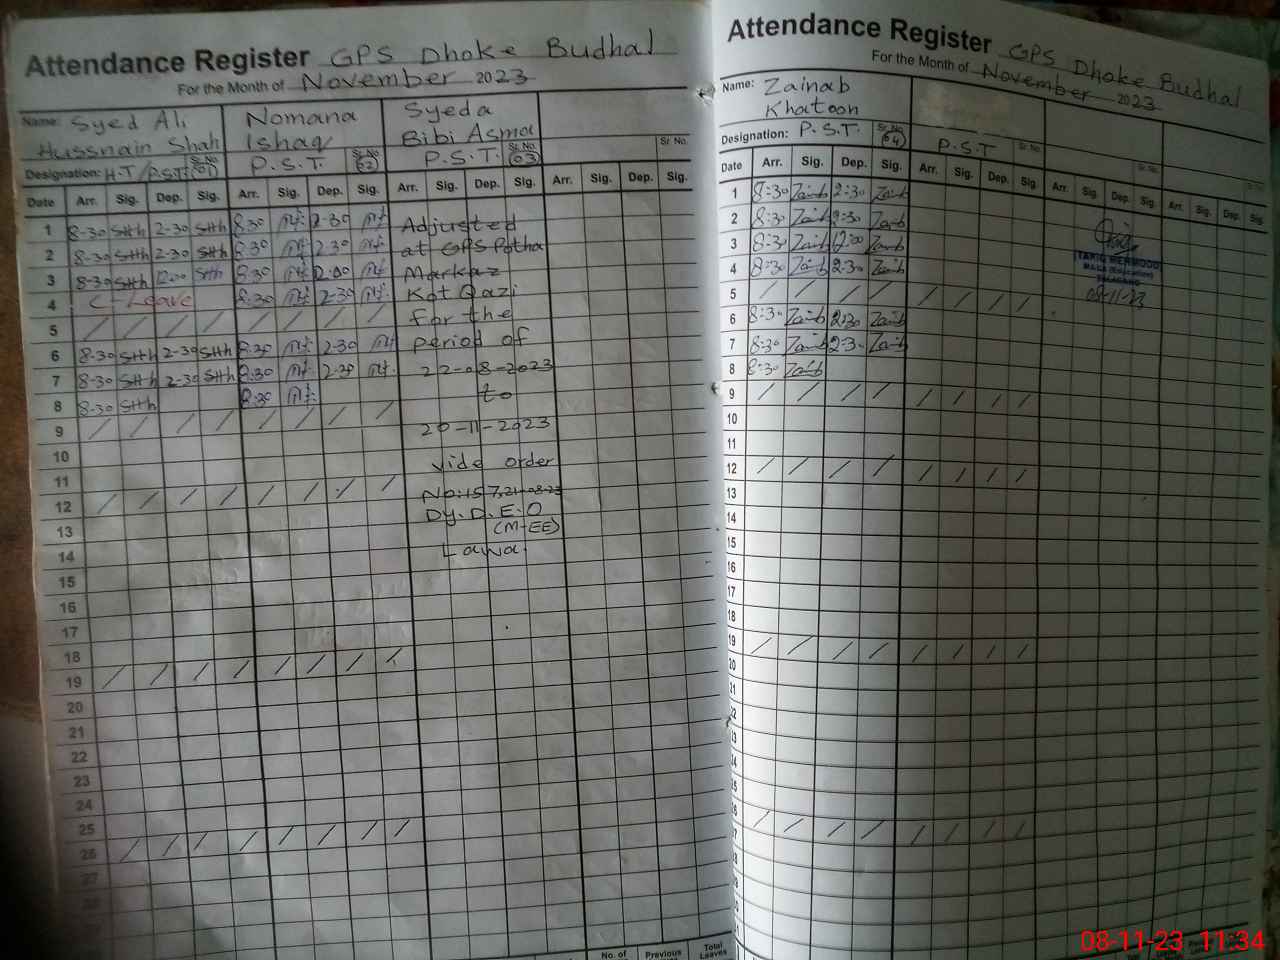 Attendance Register GPS Dhoke Budhal
For the Month of November 2023
Name: Syed Ali Hussnain Shah
Nomana Ishaq
Syeda Bibi Asma
Sr. No.
Designation: H.T/P.S.T Sr. No. 01
P.S.T. Sr. No. 02
P.S.T. Sr. No. 03
Date Arr. Sig. Dep. Sig. Arr. Sig. Dep. Sig. Arr. Sig. Dep. Sig. Arr. Sig. Dep. Sig.
1 8-30 SHh 2-30 SHh 8:30 2-30 Adjusted
2 8-30 SHh 2-30 SHh 8:30 2:30 at GPS Potha
3 8-30 SHh 12:00 SHh 8:30 12:00 Markaz
4 C-Leave 8:30 2-30 Kot Qazi
5 / / / / / / / / For the
6 8-30 SHh 2-30 SHh 8:30 2:30 period of
7 8-30 SHh 2-30 SHh 8:30 2:30 22-08-2023
8 8-30 SHh 8:30 to
9 / / / / / / / / 20-11-2023
10 vide order
11 No:157,21-08-23
12 / / / / / / / / Dy. D. E. O
13 (M-EE)
14 Lawa.
15
16
17
18
19 / / / / / / / /
20
21
22
23
24
25
26 / / / / / / / /
27
No. of
Previous
Total Leaves
Attendance Register GPS Dhoke Budhal
For the Month of November 2023
Name: Zainab Khatoon
Designation: P.S.T. Sr. No. 04
P.S.T Sr. No.
Sr. No.
Date Arr. Sig. Dep. Sig. Arr. Sig. Dep. Sig. Arr. Sig. Dep. Sig. Arr. Sig. Dep. Sig.
1 8:30 Zainb 2:30 Zainb
2 8:30 Zainb 2:30 Zainb
3 8:30 Zainb 12:00 Zainb
4 8:30 Zainb 2:30 Zainb
5 / / / / / / / /
6 8:30 Zainb 2:30 Zainb
7 8:30 Zainb 2:30 Zainb
8 8:30 Zainb
9 / / / / / / / /
10
11
12 / / / / / / / /
13
14
15
16
17
18
19 / / / / / / / /
20
21
22
TARIQ MEHMOOD
08-11-23
08-11-23 11:34